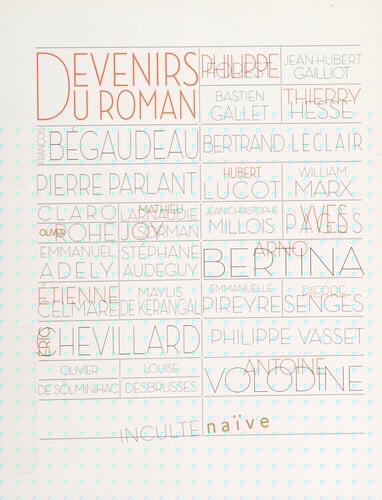 DEVENIRS
DU ROMAN
PHILIPPE
FOREST
JEAN-HUBERT
GAILLIOT
BASTIEN
GALLET
THIERRY
HESSE
FRANÇOIS
BÉGAUDEAU
BERTRAND LECLAIR
PIERRE PARLANT
HUBERT
LUCOT
WILLIAM
MARX
CLARO
MATHIEU
LARNAUDIE
JEAN-CHRISTOPHE
MILLOIS
YVES
PAGÈS
OLIVIER
ROHE
JOY
SORMAN
EMMANUEL
ADELY
STÉPHANE
AUDEGUY
ARNO
BERTINA
ÉTIENNE
CELMARE
MAYLIS
DE KERANGAL
EMMANUELLE
PIREYRE
PIERRE
SENGES
ÉRIC
CHEVILLARD
PHILIPPE VASSET
OLIVIER
DE SOLMINIHAC
LOUISE
DESBRUSSES
ANTOINE
VOLODINE
INCULTE naïve